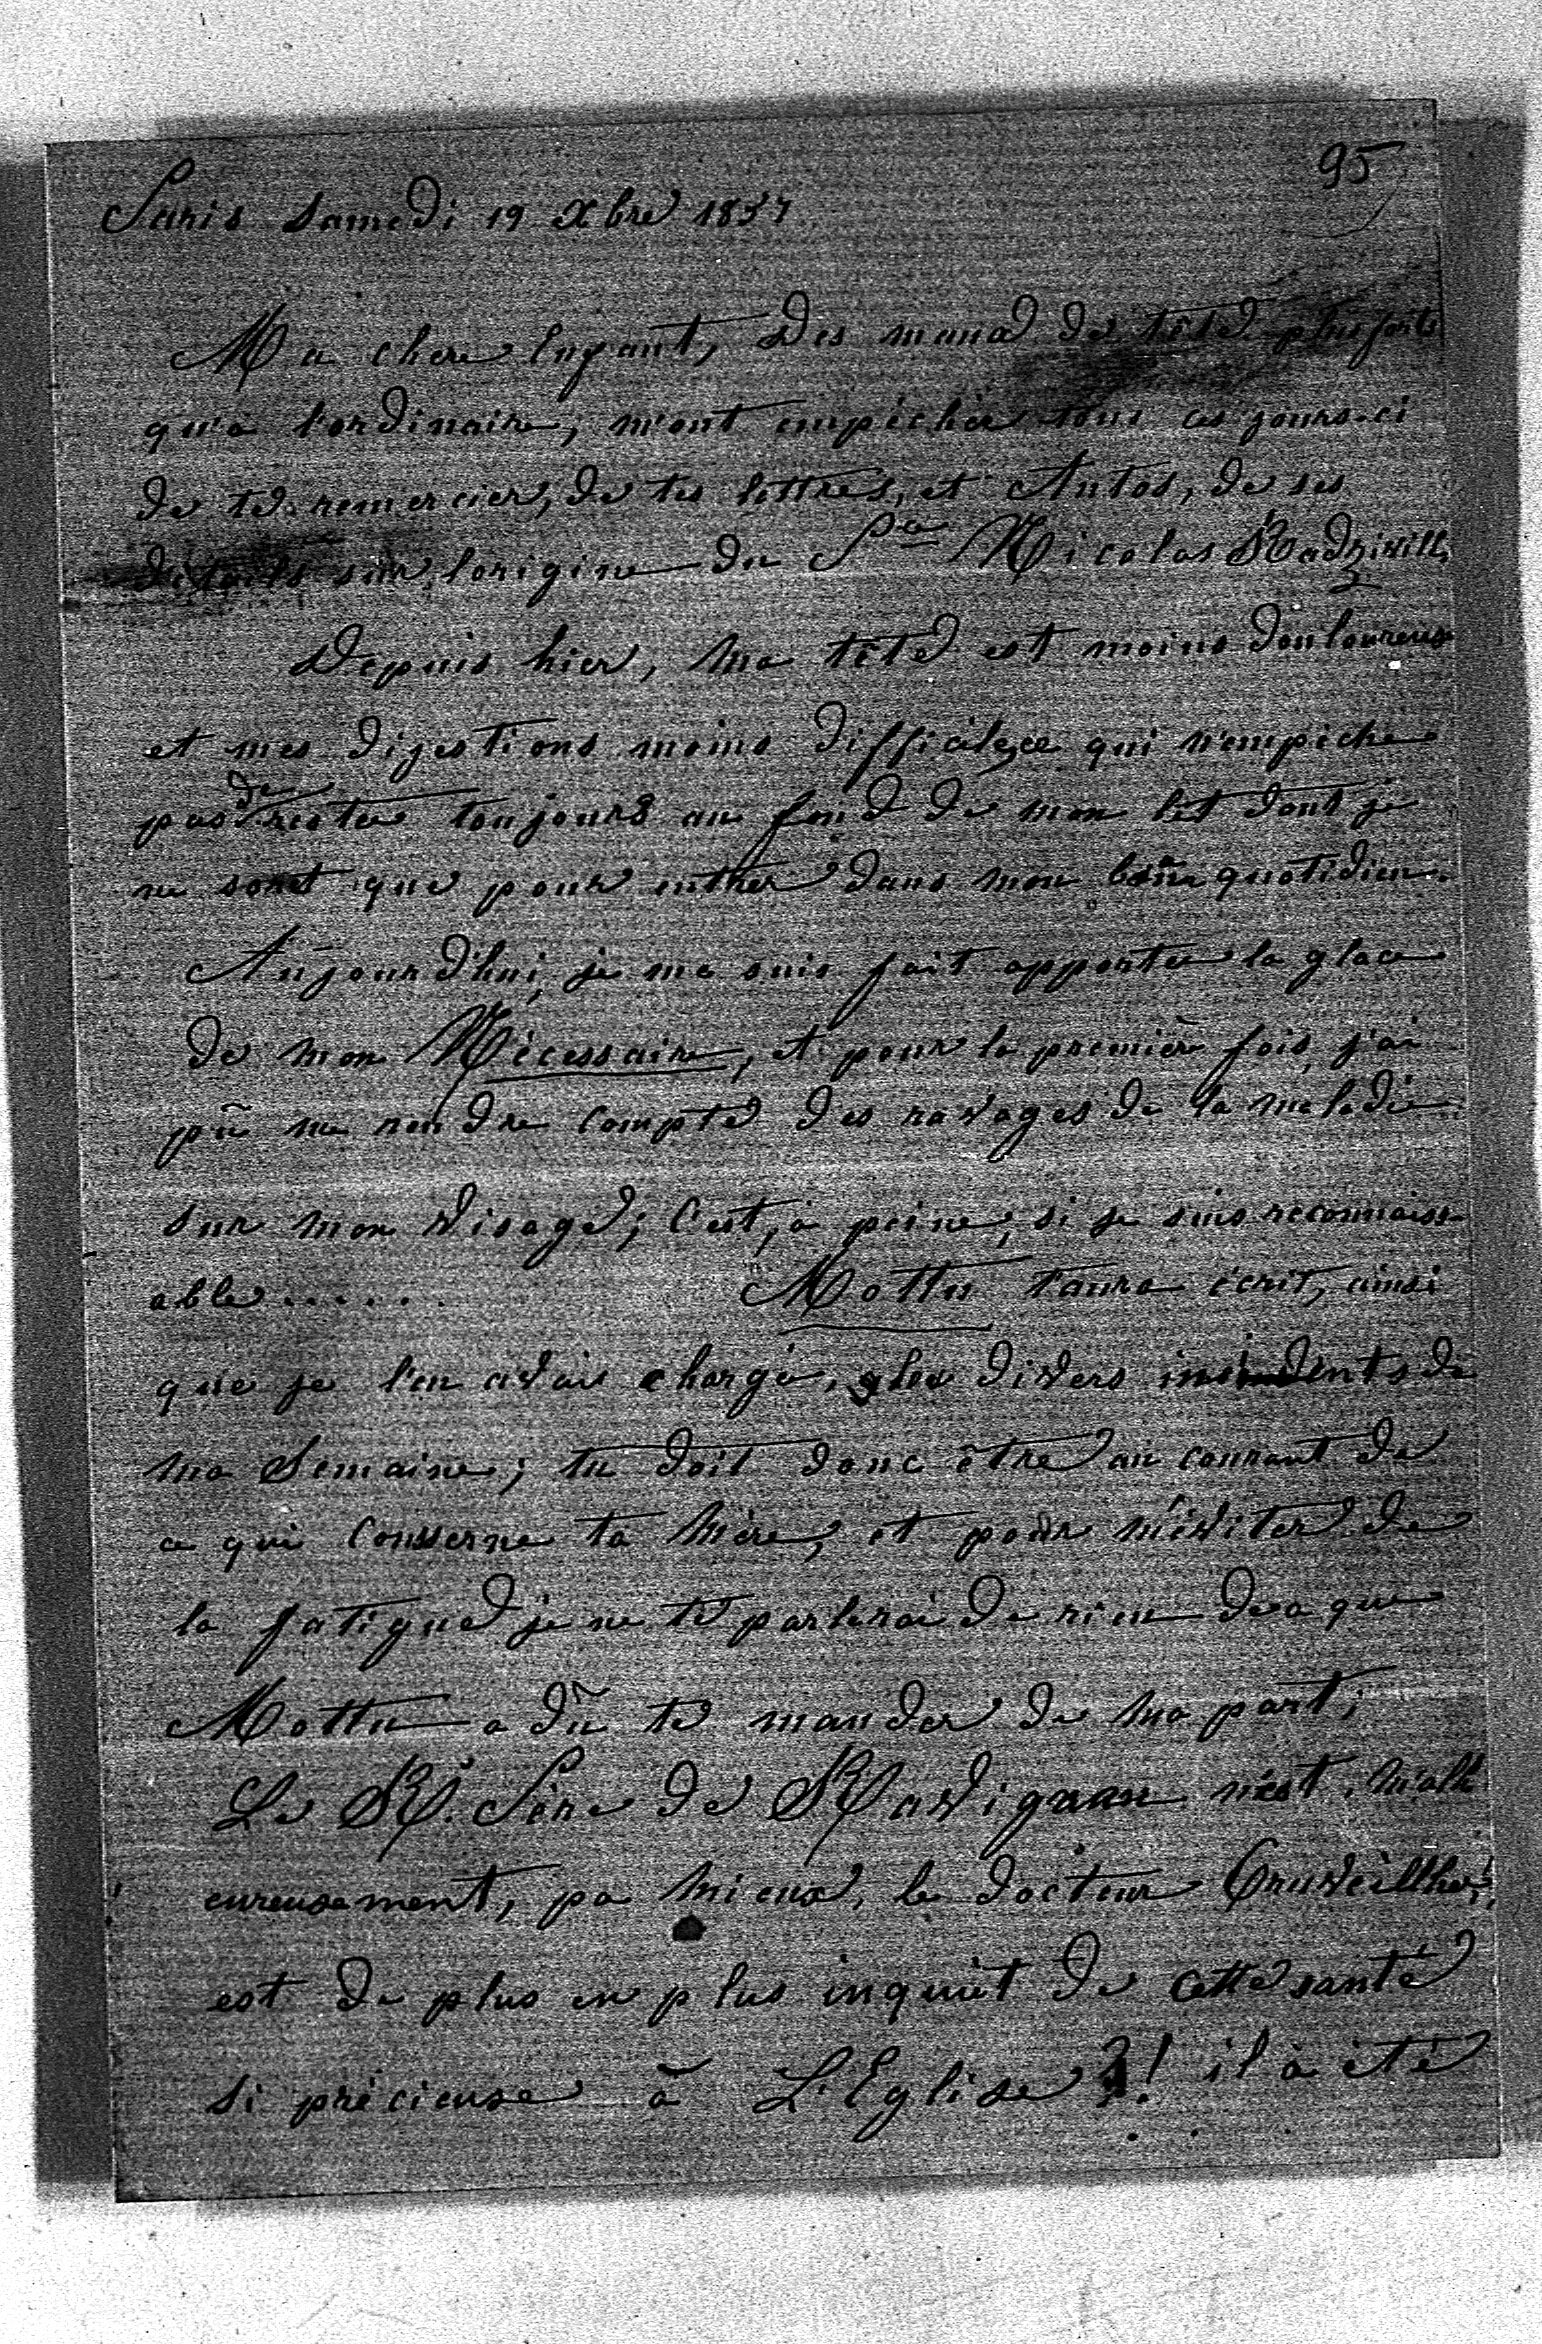 95
Paris Samedi 19 Xbre 1857
Ma chere Enfant, des maux de tête plus forts
qu'à l'ordinaire, m'ont empéchée tous ces jours-ci
de te remercier, de tes lettres, et Antos, de ses
détails sur l'origine du Pce Nicolas Radziwill,
Depuis hier, ma tête est moins douloureuse
et mes digestions moins difficiles, ce qui n'empèche
pas de rester toujours au fond de mon lit dont je
ne sort que pour entrer dans mon bain quotidien.
Aujourd'hui, je me suis fait apporter la glace
de mon Nécessaire, et pour la première fois, j'ai
pû me rendre compte des ravages de la maladie
sur mon visage; c'est, à peine, si je suis reconnaiss-
able......   Mottu t'aura écrit, ainsi
que je l'en avais chargé, les divers incidents de
ma Semaine; tu doit donc être au courant de
ce qui consserne ta Mère, et pour m'éviter de
la fatigue je ne te parlerai de rien de ce que
Mottu a dû te mander de ma part;
Le R. Père de Ravignan n'est, malh
eureusement, pa mieux, le docteur Cruveilhe,
est de plus en plus inquièt de cette santé
si précieuse à L'Eglise ?! il à été